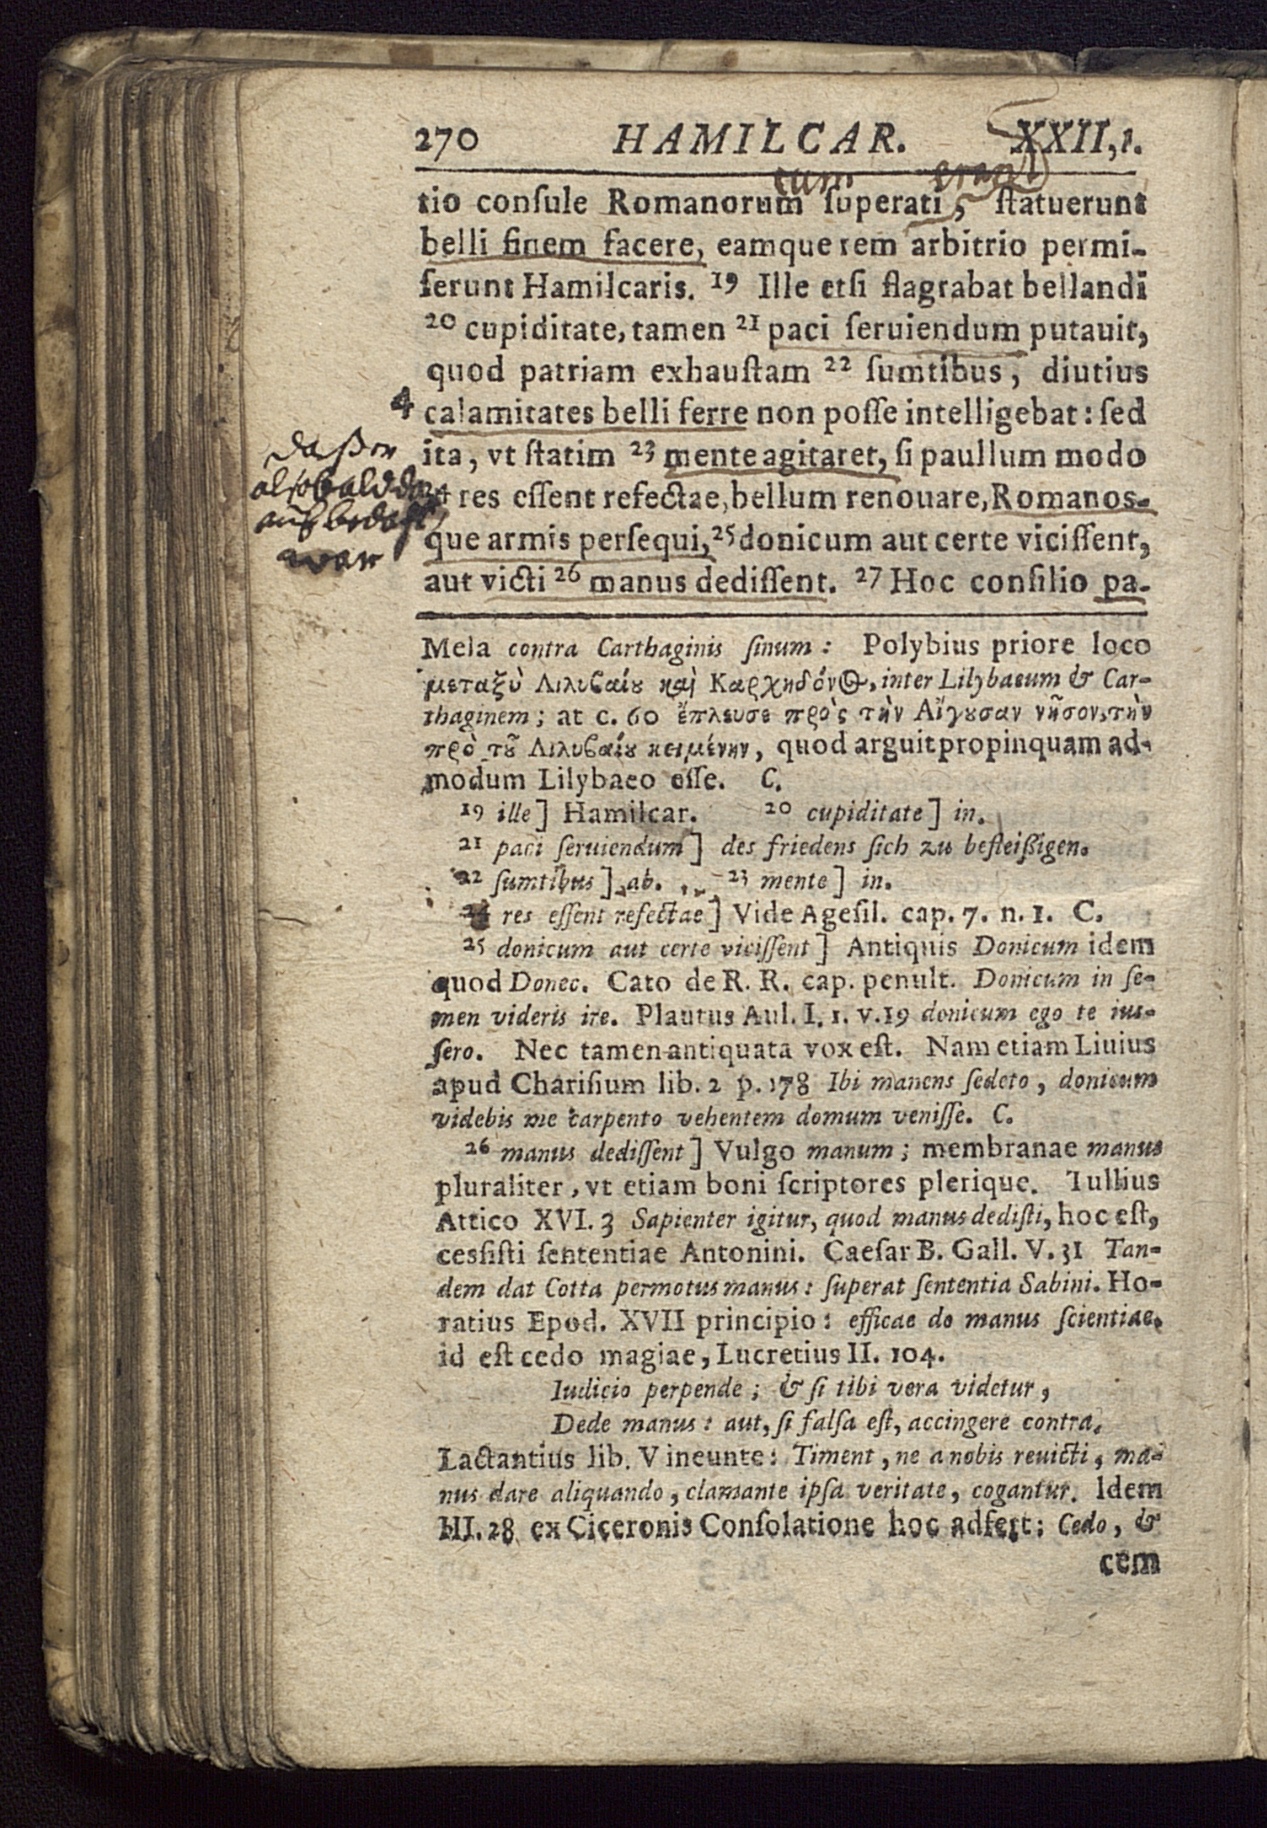 270 HAMILCAR. XXII,1.
cum erant
tio conſule Romanorum ſuperati, ſtatuerunt
belli finem facere, eamque rem arbitrio permi-
ſerunt Hamilcaris. 19 Ille etſi flagrabat bellandi
20 cupiditate, tamen 21 paci ſeruiendum putauit,
quod patriam exhauſtam 22 ſumtibus, diutius
4 calamitates belli ferre non poſſe intelligebat: ſed
ita, vt ſtatim 23 mente agitaret, ſi paullum modo
res eſſent refectae, bellum renouare, Romanos-
que armis perſequi, 25 donicum aut certe viciſſent,
aut victi 26 manus dediſſent. 27 Hoc conſilio pa-
daß er
alsobald dar
auf bedacht
war
Mela contra Carthaginis ſinum: Polybius priore loco
μεταξὺ Λιλυβαίου καὶ Καρχηδόνος, inter Lilybaeum & Car-
thaginem; at c. 60 ἔπλευσε πρὸς τὴν Αἴγουσαν νῆσον, τὴν
πρὸ τοῦ Λιλυβαίου κειμένην, quod arguit propinquam ad-
modum Lilybaeo eſſe. C.
19 ille] Hamilcar. 20 cupiditate] in.
21 paci ſeruiendum] des friedens ſich zu befleißigen.
22 ſumtibus] ab. 23 mente] in.
24 res eſſent refectae] Vide Ageſil. cap. 7. n. 1. C.
25 donicum aut certe viciſſent] Antiquis Donicum idem
quod Donec. Cato de R. R. cap. penult. Donicum in ſe-
men videris ire. Plautus Aul. I. 1. v. 19 donicum ego te iuſ-
ſero. Nec tamen antiquata vox eſt. Nam etiam Liuius
apud Chariſium lib. 2 p. 178 Ibi manens ſedeto, donicum
videbis me carpento vehentem domum veniſſe. C.
26 manus dediſſent] Vulgo manum; membranae manus
pluraliter, vt etiam boni ſcriptores plerique. Tullius
Attico XVI. 3 Sapienter igitur, quod manus dediſti, hoc eſt,
ceſſiſti ſententiae Antonini. Caeſar B. Gall. V. 31 Tan-
dem dat Cotta permotus manus: ſuperat ſententia Sabini. Ho-
ratius Epod. XVII principio: efficae do manus ſcientiae,
id eſt cedo magiae, Lucretius II. 104.
Iudicio perpende; & ſi tibi vera videtur,
Dede manus: aut, ſi falſa eſt, accingere contra.
Lactantius lib. V ineunte: Timent, ne a nobis reuicti, ma-
nus dare aliquando, clamante ipſa veritate, cogantur. Idem
III. 28 ex Ciceronis Conſolatione hoc adfert: Cedo, &
cem